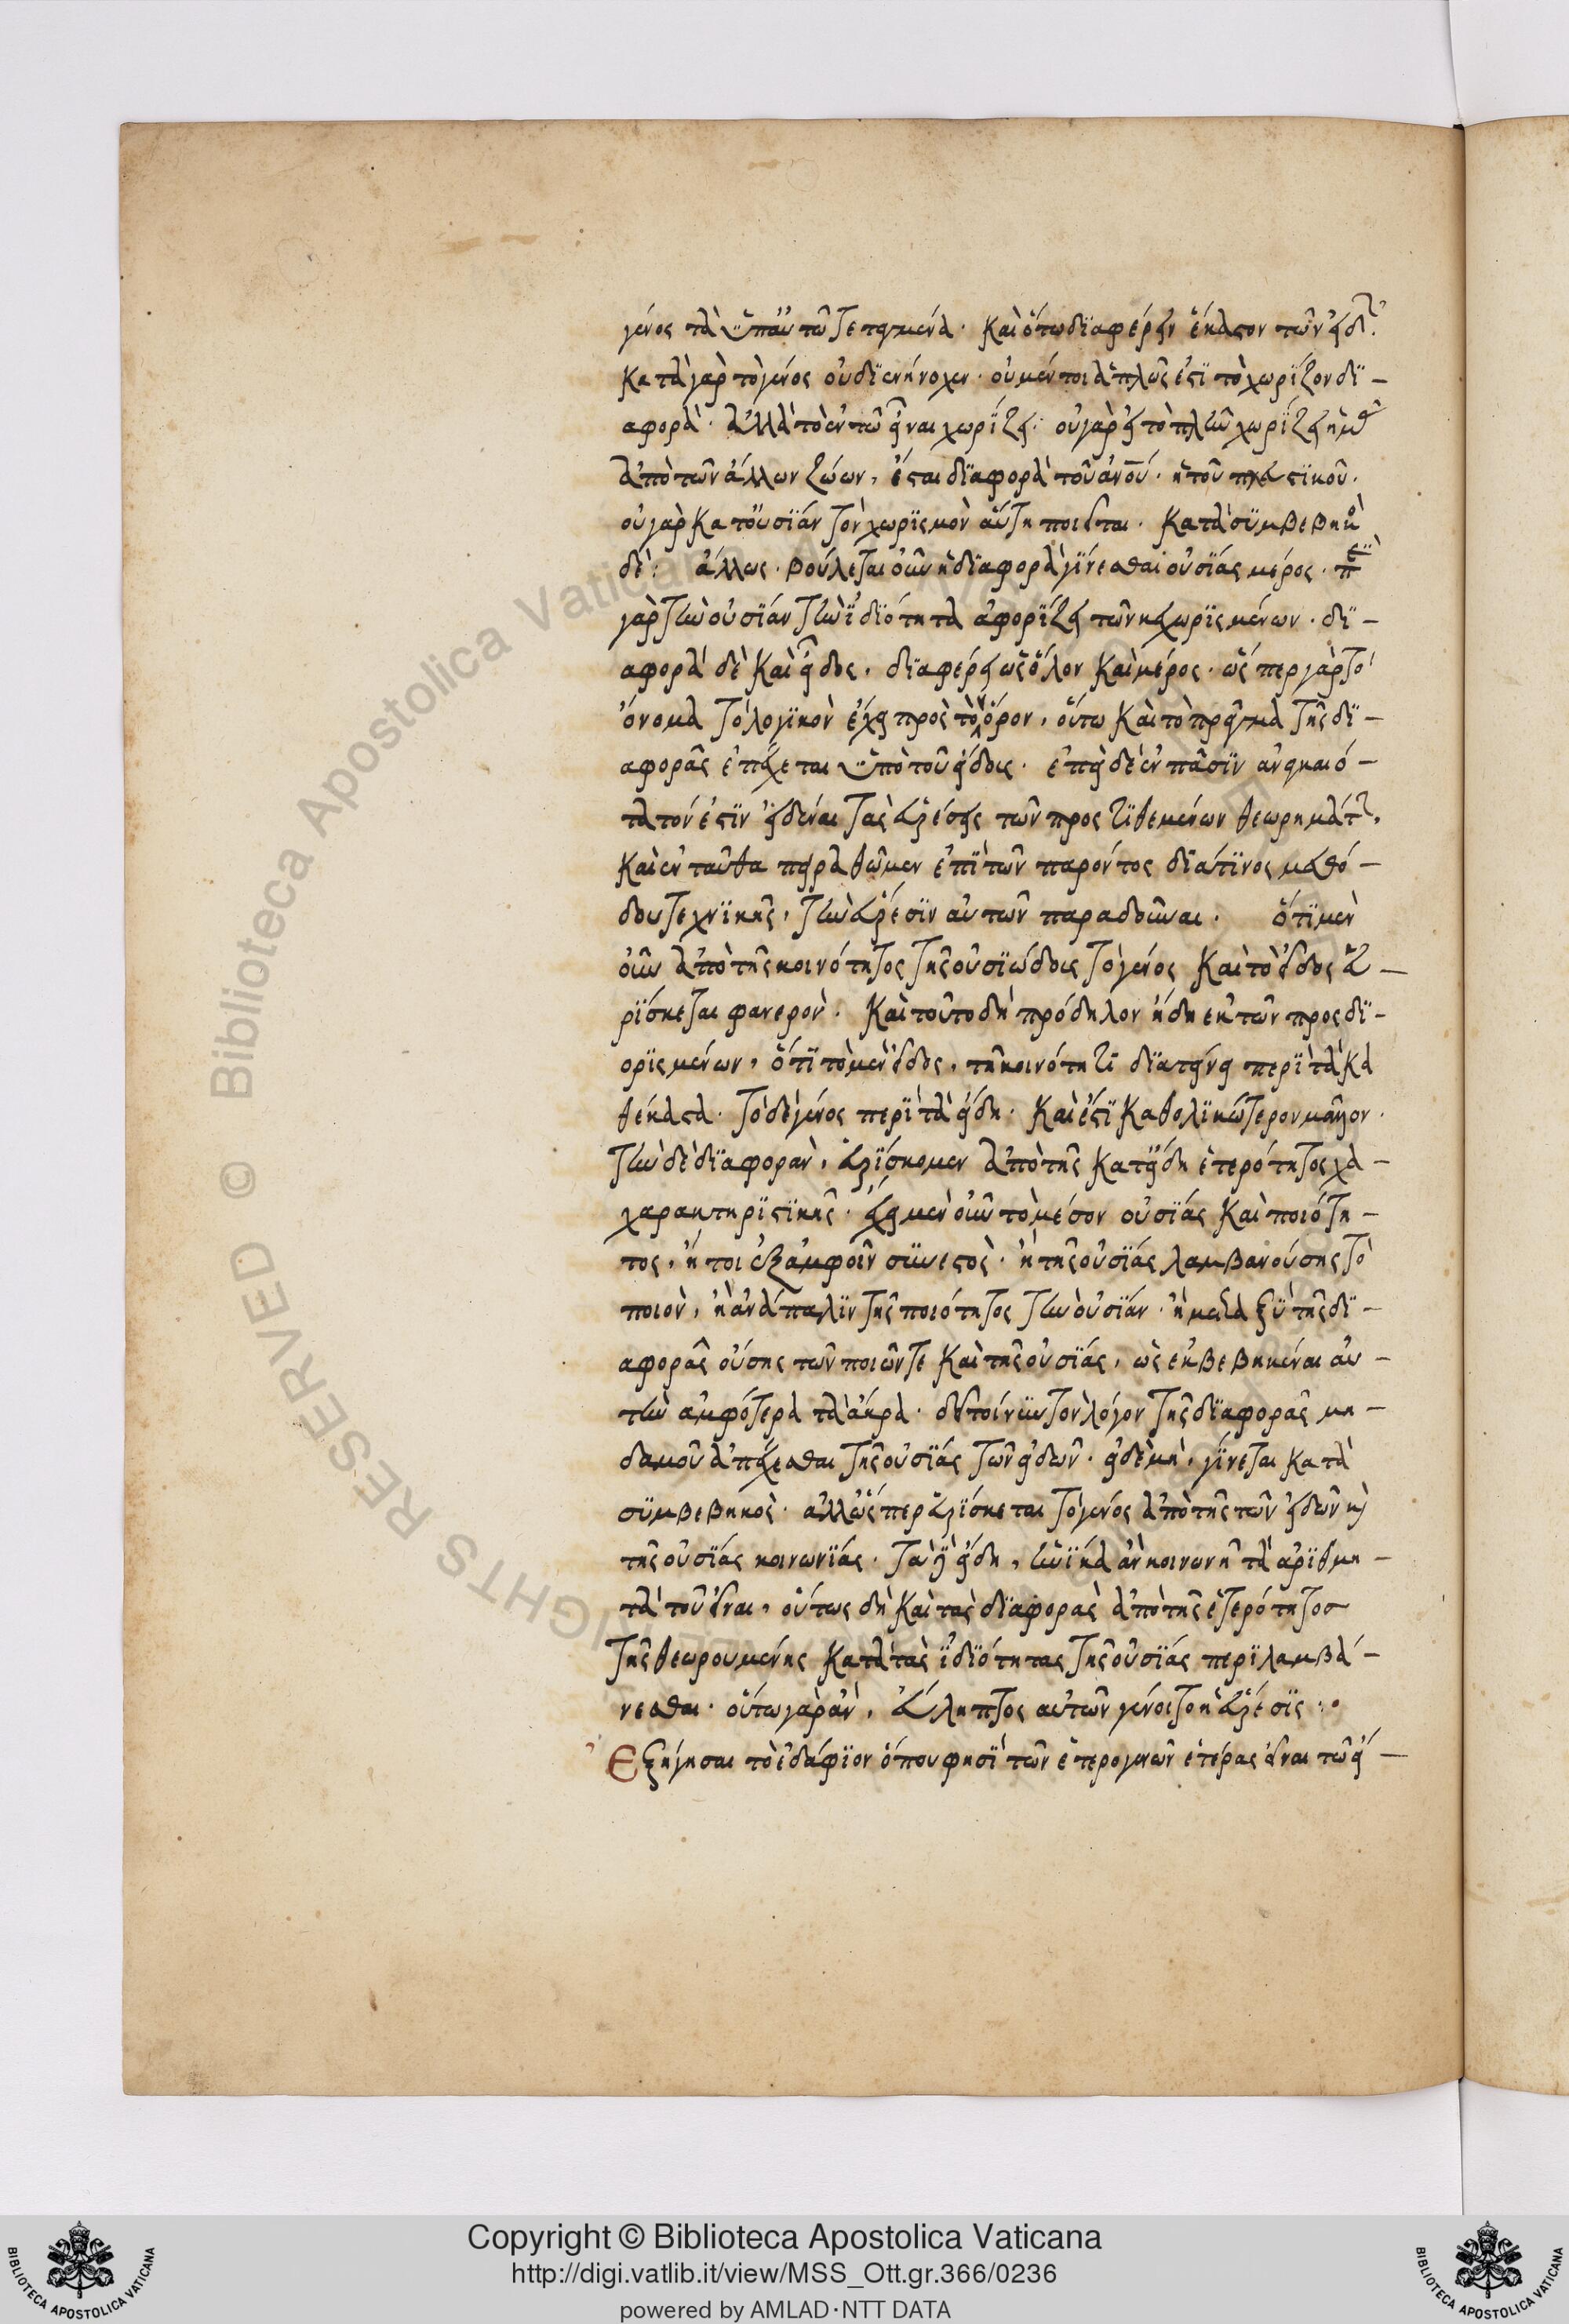 γένος τὰ ὑπ' αὐτῶ τεταγμένα. Καὶ ὅτω διαφέρειν ἕκαστον τῶν εἰδῶν.
Κατὰ γὰρ τὸ γένος οὐ διενήνοχεν. οὐ μέντοι ἁπλῶς ἐστὶ τὸ χωρίζον δι–
αφορά. ἀλλὰ τὸ ἐν τῶ εἶναι χωρίζει. οὐ γὰρ εἰ τὸ πλεῖν χωρίζει ἡμᾶς
ἀπὸ τῶν ἄλλων ζώων, ἔσται διαφορὰ τοῦ ἀνου. ἢ τοῦ
οὐ γὰρ κατ' οὐσίαν τὸν χωρισμὸν αὕτη ποιεῖται. Κατὰ συμβεβηκὸς
δὲ: ἄλλως. βούλεται οὖν ἡ διαφορὰ γίνεσθαι οὐσίας μέρος.
γὰρ τὴν οὐσίαν τὴν ἰδιότητα ἀφορίζει τῶν κεχωρισμένων. δι–
αφορὰ δὲ καὶ εἶδος, διαφέρει ὡς ὅλον καὶ μέρος. ὥσπερ γὰρ τὸ
ὄνομα τὸ λογικὸν ἔχει πρὸς τὸν ὅρον, οὕτω καὶ τὸ πρᾶγμα τῆς δι–
αφορᾶς ἐπέχεται ὑπὸ τοῦ εἴδους. ἐπεὶ δὲ ἐν πᾶσιν ἀναγκαιό–
τατόν ἐστιν εἰδέναι τὰς εὑρέσεις τῶν προστιθεμένων θεωρημάτων,
Καὶ ἐνταῦθα πειραθῶμεν ἐπὶ τῶν παρόντος διά τινος μεθό–
δου τεχνικῆς, τὴν εὕρεσιν αὐτῶν παραδοῦναι. ὅτι μὲν
οὖν ἀπὸ τῆς κοινότητος τῆς οὐσιώδους τὸ γένος καὶ τὸ εἶδος εὑ–
ρίσκεται φανερόν. Καὶ τοῦτο δὴ πρόδηλον ἤδη ἐκ τῶν προσδι–
ορισμένων, ὅτι τὸ μὲν εἶδος, τῆ κοινότητι διατείνει περὶ τὰ κα
θέκαστα. τὸ δὲ γένος περὶ τὰ εἴδη. Καὶ ἐστὶ καθολικώτερον μᾶλλον.
τὴν δὲ διαφοράν, εὑρίσκομεν ἀπὸ τῆς κατ' εἴδη ἑτερότητος χα–
χαρακτηριστικῆς. ἔχει μὲν οὖν τὸ μέσον οὐσίας καὶ ποιότη–
τος, ἤτοι ἐξ ἀμφοῖν συνεστὸς. ἢ τῆς οὐσίας λαμβανούσης τὸ
ποιὸν, ἢ ἀνάπαλιν τῆς ποιότητος τὴν οὐσίαν. ἢ μεταξὺ τῆς δι–
αφορᾶς οὔσης τῶν ποιῶν τε καὶ τῆς οὐσίας, ὡς ἐκβεβηκέναι αὐ–
τὴν ἀμφότερα τὰ ἄκρα. δεῖ τοίνυν τὸν λόγον τῆς διαφορᾶς μη–
δαμοῦ ἀπέχεσθαι τῆς οὐσίας τῶν εἰδῶν. εἰ δὲ μὴ, γίνεται κατὰ
συμβεβηκὸς. ἀλλ' ὥσπερ εὑρίσκεται τὸ γένος ἀπὸ τῆς τῶν εἰδῶν κὶ
τῆς οὐσίας κοινωνίας. τὰ γε εἴδη, ἡνίκα ἂν κοινωνῆ τὰ ἀριθμη–
τὰ τοῦ εἶναι, οὕτως δὴ καὶ τὰς διαφορὰς ἀπὸ τῆς ἑτερότητος
τῆς θεωρουμένης κατὰ τὰς ἰδιότητας τῆς οὐσίας περιλαμβά–
νεσθαι. οὕτω γὰρ ἂν, εὔληπτος αὐτῶν γένοιτο ἡ εὕρεσις.
Ἐξήγησαι τὸ ἐδάφιον ὅπου φησὶ τῶν ἑτερογενῶν ἑτέρας εἶναι τῶ εἴ–
Copyright © Biblioteca Apostolica Vaticana
http://digi.vatlib.it/view/MSS_Ott.gr.366/0236
powered by AMLAD·NTT DATA